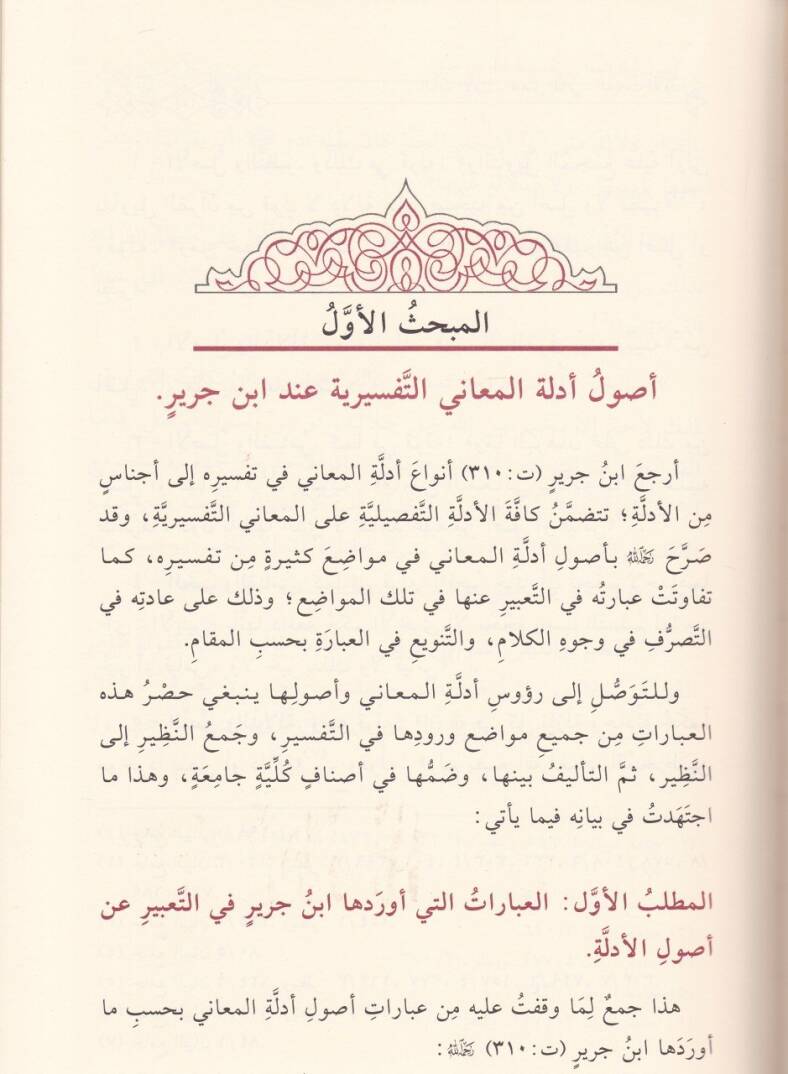 المبحثُ الأوَّلُ
أصولُ أدلة المعاني التَّفسيرية عند ابن جريرٍ.
أرجعَ ابنُ جريرٍ (ت:٣١٠) أنواعَ أدلَّةِ المعاني في تفسيرِه إلى أجناسٍ
مِن الأدلَّةِ؛ تتضمَّنُ كافَّةَ الأدلةِ التَّفصيليَّةِ على المعاني التَّفسيريَّةِ، وقد
صَرَّحَ رَحِمَهُ اللَّهُ بأصولِ أدلَّةِ المعاني في مواضِعَ كثيرةٍ مِن تفسيرِه، كما
تفاوتَتْ عبارتُه في التَّعبيرِ عنها في تلك المواضِع؛ وذلك على عادتِه في
التَّصرُّفِ في وجوهِ الكلامِ، والتَّنويعِ في العبارَةِ بحسبِ المقامِ.
وللتَوَصُّلِ إلى رؤوسِ أدلَّةِ المعاني وأصولِها ينبغي حصْرُ هذه
العباراتِ مِن جميعِ مواضع ورودِها في التَّفسيرِ، وجَمعُ النَّظِيرِ إلى
النَّظِير، ثمَّ التأليفُ بينها، وضَمُّها في أصنافٍ كُلِّيَّةٍ جامِعَةٍ، وهذا ما
اجتَهَدتُ في بيانِه فيما يأتي:
المطلبُ الأوَّل: العباراتُ التي أورَدها ابنُ جريرٍ في التَّعبيرِ عن
أصولِ الأدلَّةِ.
هذا جمعٌ لِمَا وقفتُ عليه مِن عباراتِ أصولِ أدلَّةِ المعاني بحسبِ ما
أورَدَها ابنُ جريرٍ (ت:٣١٠) رَحِمَهُ اللَّهُ: